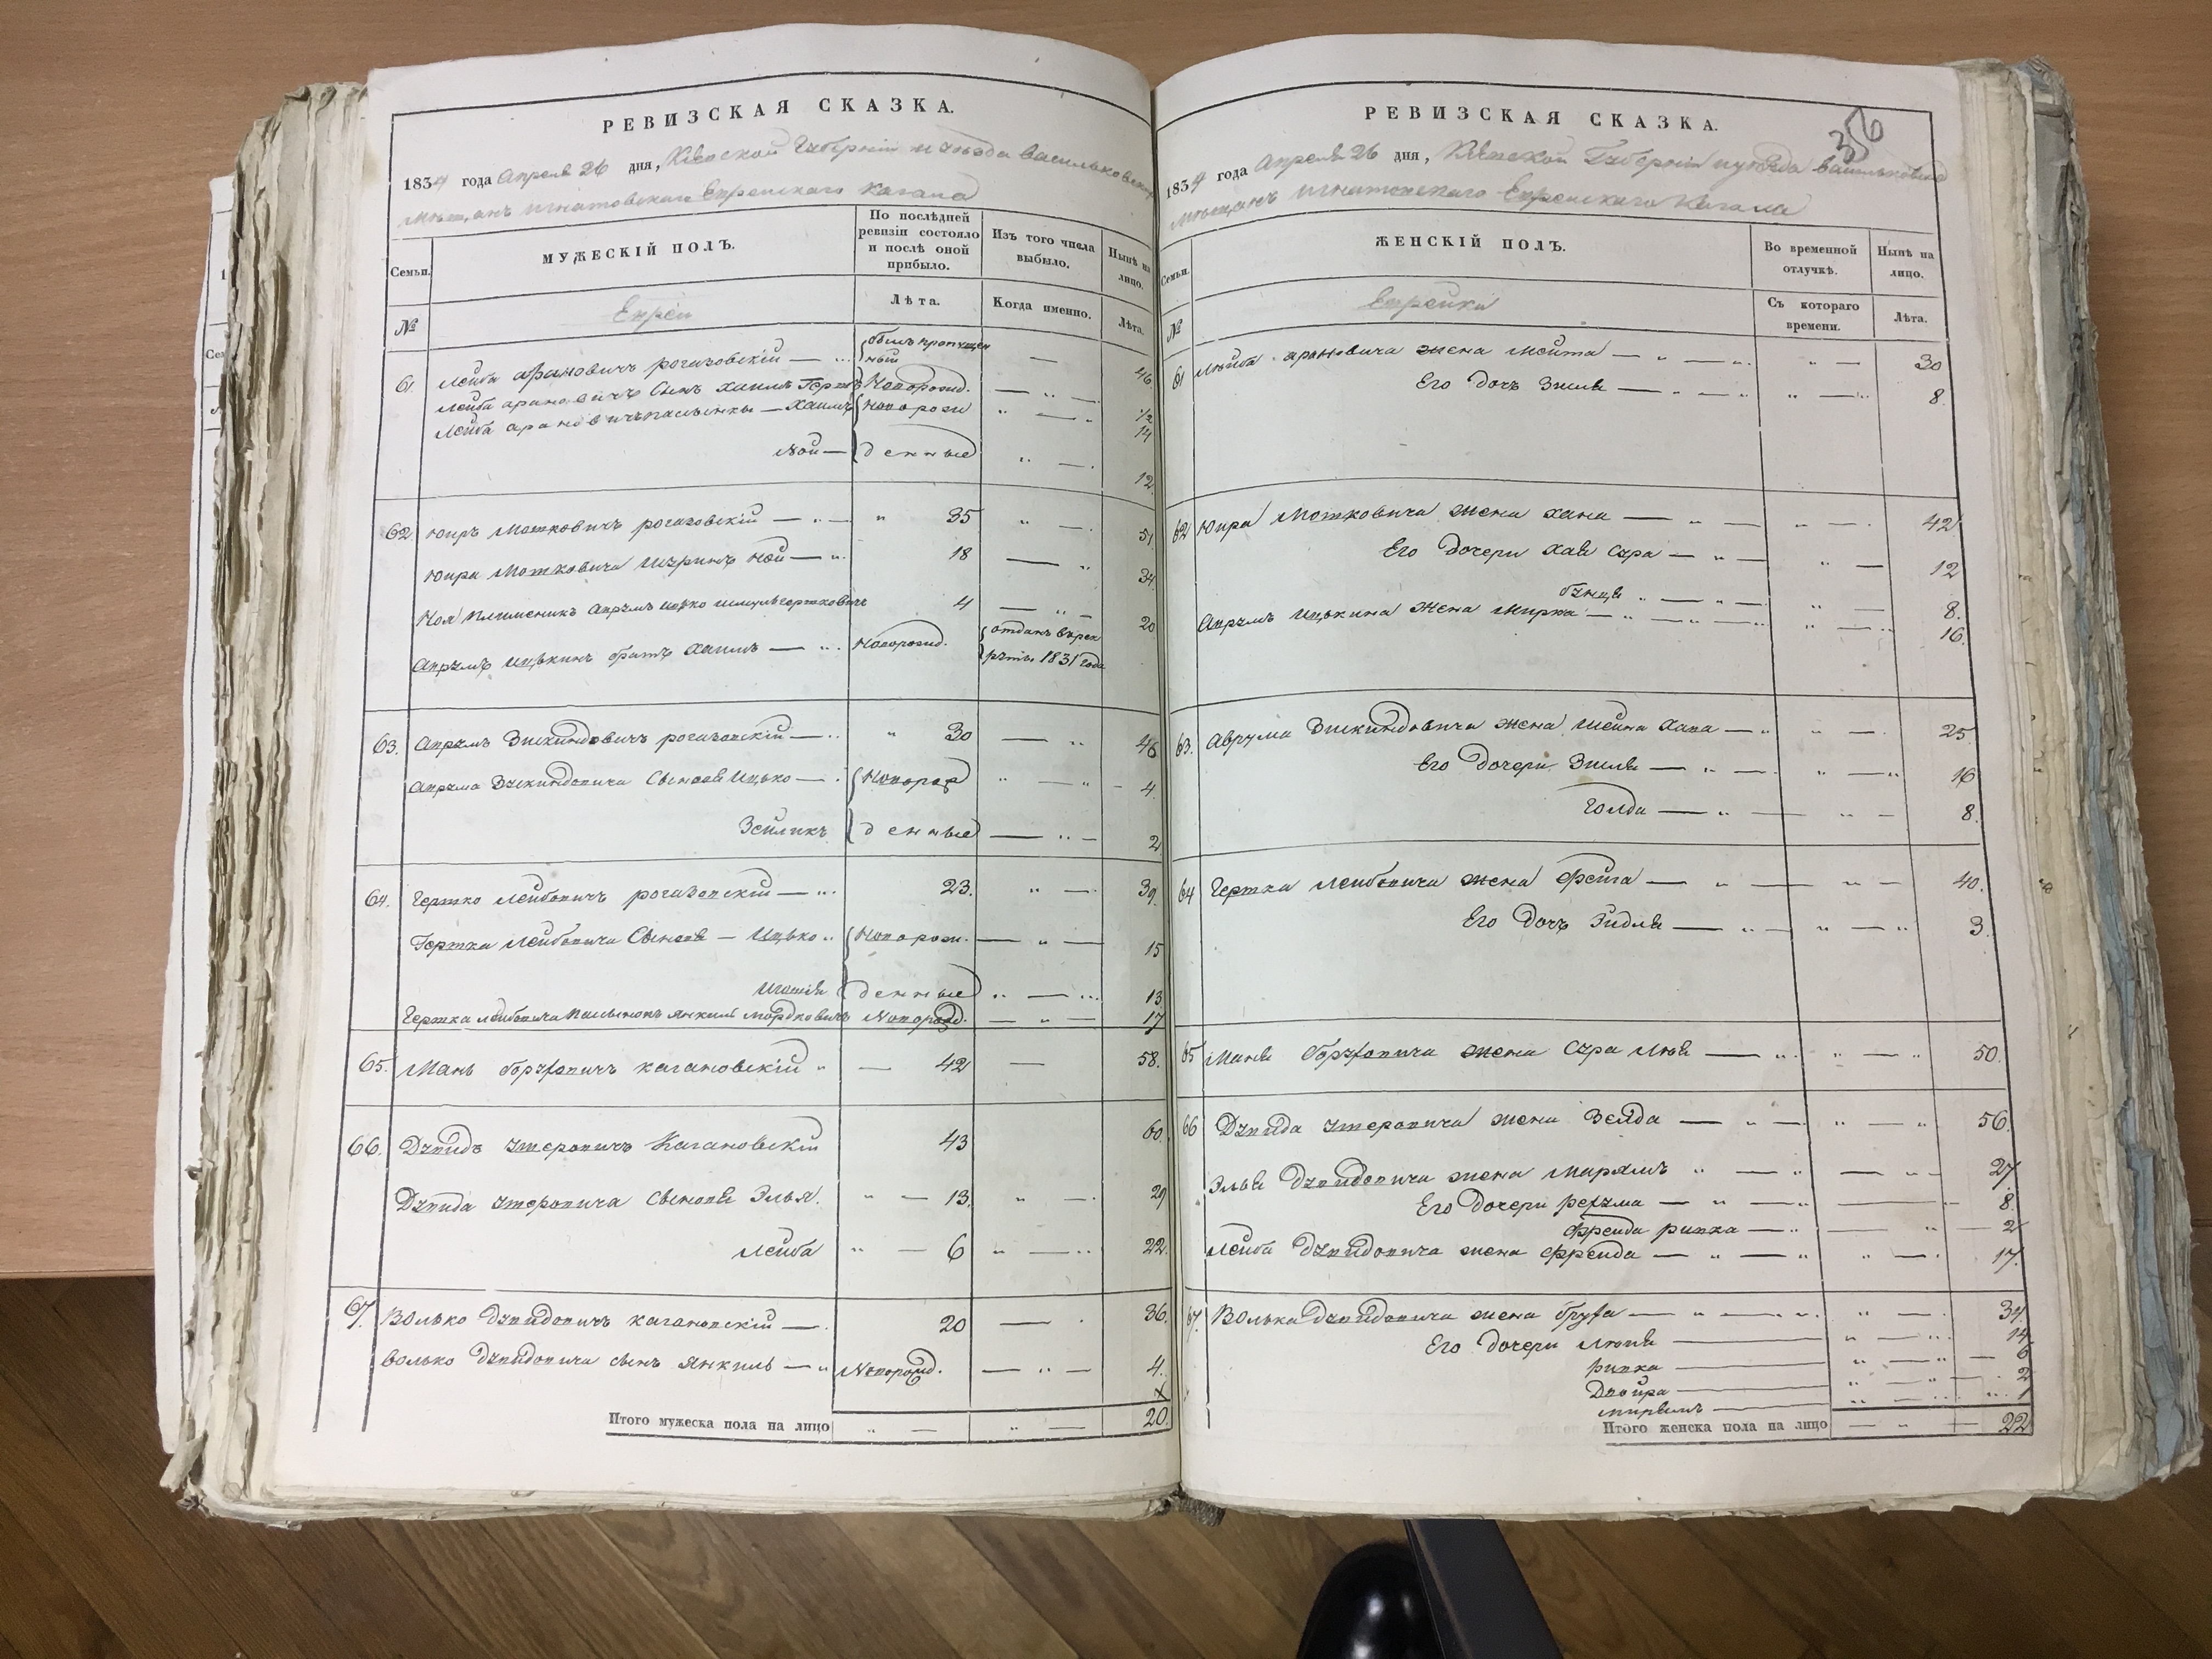 РЕВИЗСКАЯ СКАЗКА.
1834 года Апреля 26 дня, Кіевской Губерніи и уезда Васильковскаго
мѣщанъ Игнатовскаго Еврейскаго Кагала
Семьи.
МУЖЕСКІЙ ПОЛЪ.
По послѣдней ревизіи состояло и послѣ оной прибыло.
Изъ того числа выбыло.
Нынѣ на лицо.
№
Евреи
Лѣта.
Когда именно.
Лѣта.
61 Лейба Арановичъ рогазовскій — былъ пропущенный — 46
Лейба Арановичъ Сынъ Хаимъ Герш Новорожд. — 1/2
Лейба арановичъ пасынки — Хаимъ Новорож 14
Ной — денные 12
62 Юиръ Мотковичъ рогазовскій — 35 51
Юира Мотковича Шуринъ Ной — 18 — 34
Ноя Племеникъ Аврумъ Ицько 4 — 20
Аврумъ Ицькинъ братъ Хаимъ — Новорожд. отданъ въ рек
руты 1831 года
63. Аврумъ Зискиндовичъ рогазовскій — 30 — 46
Аврума Зискиндовича Сыновя Ицько — Новорож — 4
Зейликъ денные — 2
64. Гершко Лейбовичъ рогазовскій — 23. — 39.
Гершка Лейбовича Сыновя — Ицько Новорож. — 15
денные — 13
Гершка лейбовича Пасынокъ Янкиль Мордковичъ Новорожд. — 17
65. Мань борухович кагановскій — 42 — 58.
66. Давидъ Кагановскій 43 60.
Давида сыновя Элья. — 13. — 29
Лейба — 6 — 22.
67. Волько Давидовичъ кагановскій — 20 — 36.
Волько Давидовича сынъ Янкиль — Новорожд. — 4.
Итого мужеска пола на лицо — — 20.
РЕВИЗСКАЯ СКАЗКА.
356
1834 года Апреля 26 дня, Кіевской Губерніи и уезда Васильковскаго
мѣщанъ Игнатовскаго Еврейскаго Кагала
Семьи.
ЖЕНСКІЙ ПОЛЪ.
Во временной отлучкѣ.
Нынѣ на лицо.
№
Еврейки
Съ котораго времени.
Лѣта.
61 Лейба арановича жена Мейта — — 30
Его Дочь Зисля — — 8.
62 Юира Мотковича жена хана — — 42
Его дочери Хая Сура — — 12
бунця — — 8.
Аврумъ Ицькина жена Мирка — — 16.
63. Аврума Зискиндовича жена Шейна Хана — — 25
Его дочери Зисля — — 16
Голда — — 8.
64 Гершка Лейбовича жена Фейга — — 40.
Его Дочь — — 3
65 Маня боруховича жена Сура — — 50.
66 Давида жена Зелда — — 56.
Элья Давидовича жена Марямъ — — 27
Его дочери рехума — — 8.
Фрейда ривка — — 2
Лейба Давидовича жена Фрейда — — 17.
67. Волька Давидовича жена Бруха — — 34.
Его дочери — 14
ривка — 6
Двойра — 2
Мирьямъ — 1
Итого женска пола на лицо — — 22